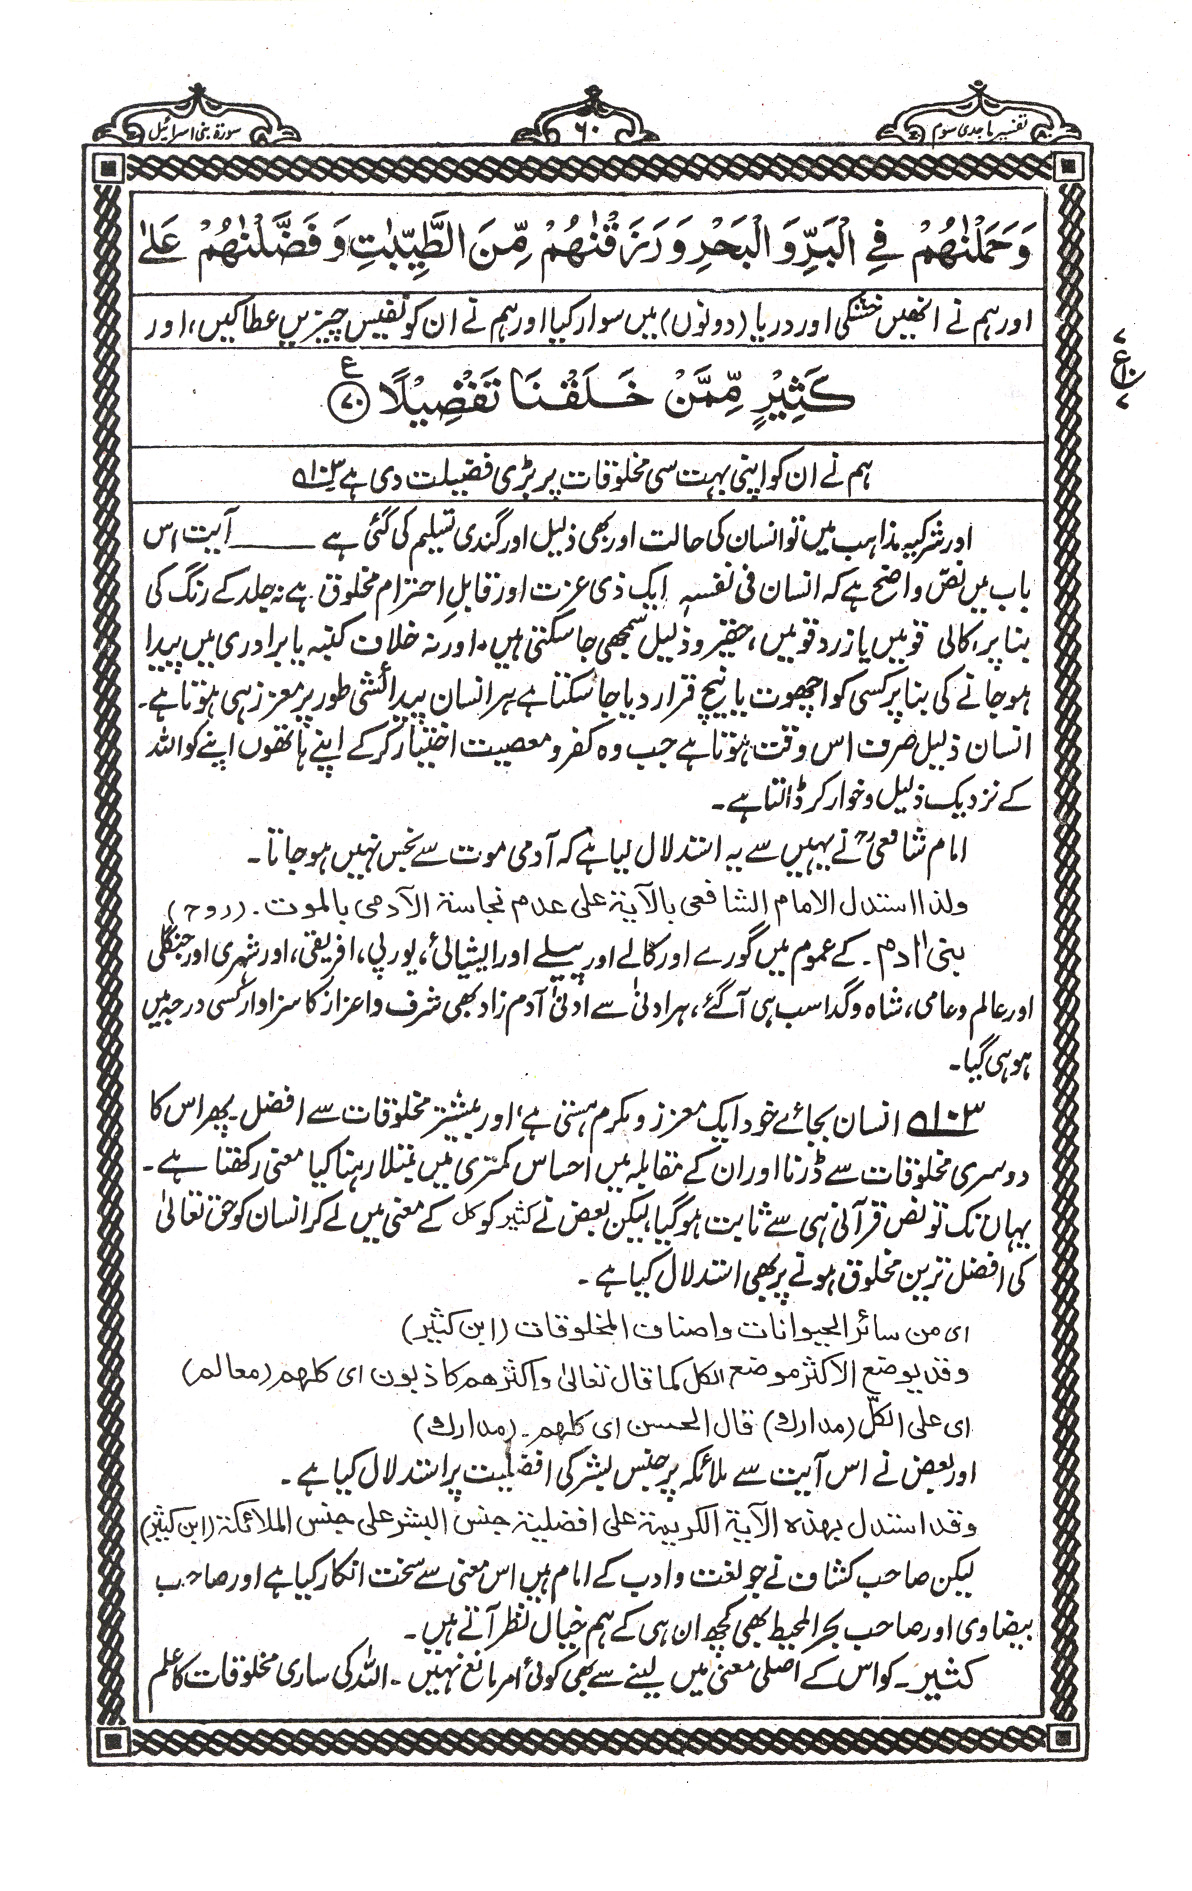 تفسیر ماجدی سوم
۶۰
سورۃ بنی اسرائیل
وَحَمَلْنٰهُمْ فِی الْبَرِّ وَ الْبَحْرِ وَ رَزَقْنٰهُمْ مِّنَ الطَّیِّبٰتِ وَ فَضَّلْنٰهُمْ عَلٰی
اور ہم نے انھیں خشکی اور دریا (دونوں) میں سوار کیا اور ہم نے ان کو نفیس چیزیں عطا کیں، اور
كَثِیْرٍ مِّمَّنْ خَلَقْنَا تَفْضِیْلًا ۷۰ ع
ہم نے ان کو اپنی بہت سی مخلوقات پر بڑی فضیلت دی ہے ۱۰۳
اور شرکیہ مذاہب میں تو انسان کی حالت اور بھی ذلیل اور گندی تسلیم کی گئی ہے ــــــ آیت اس
باب میں نصّ واضح ہے کہ انسان فی نفسہٖ ایک ذی عزت اور قابلِ احترام مخلوق ہے نہ جلد کے رنگ کی
بنا پر، کالی قومیں یا زرد قومیں، حقیر و ذلیل سمجھی جا سکتی ہیں۔ اور نہ خلاف کنبہ یا برادری میں پیدا
ہو جانے کی بنا پر کسی کو اچھوت یا نیچ قرار دیا جا سکتا ہے ہر انسان پیدائشی طور پر معزز ہی ہوتا ہے۔
انسان ذلیل صرف اس وقت ہوتا ہے جب وہ کفر و معصیت اختیار کر کے اپنے ہاتھوں اپنے کو اللہ
کے نزدیک ذلیل و خوار کر ڈالتا ہے۔
امام شافعیؒ نے یہیں سے یہ استدلال لیا ہے کہ آدمی موت سے نجس نہیں ہو جاتا۔
ولذا استدل الامام الشافعی بالآیۃ علی عدم نجاسۃ الآدمی بالموت۔ (روح)
بنی اٰدم۔ کے عموم میں گورے اور کالے اور پیلے اور ایشیائی، یورپی، افریقی، اور شہری اور جنگلی
اور عالم و عامی، شاہ و گدا سب ہی آ گئے، ہر ادنیٰ سے ادنیٰ آدم زاد بھی شرف و اعزاز کا سزاوار کسی درجہ میں
ہو ہی گیا۔
۱۰۳ انسان بجائے خود ایک معزز و مکرم ہستی ہے، اور بیشتر مخلوقات سے افضل۔ پھر اس کا
دوسری مخلوقات سے ڈرنا اور ان کے مقابلہ میں احساس کمتری میں مبتلا رہنا کیا معنی رکھتا ہے۔
یہاں تک تو نص قرآنی ہی سے ثابت ہو گیا، لیکن بعض نے کثیر کو کل کے معنی میں لے کر انسان کو حق تعالیٰ
کی افضل ترین مخلوق ہونے پر بھی استدلال کیا ہے۔
ای من سائر الحیوانات واصناف المخلوقات (ابن کثیر)
وقد یوضع الاکثر موضع الکل کما قال تعالیٰ واکثرھم کاذبون ای کلھم (معالم)
ای علی الکلّ (مدارك) قال الحسن ای کلھم۔ (مدارك)
اور بعض نے اس آیت سے ملائکہ پر جنس بشر کی افضلیت پر استدلال کیا ہے۔
وقد استدل بھذہ الآیۃ الکریمۃ علی افضلیۃ جنس البشر علی جنس الملائکۃ (ابن کثیر)
لیکن صاحب کشاف نے جو لغت و ادب کے امام ہیں اس معنی سے سخت انکار کیا ہے اور صاحب
بیضاوی اور صاحب بحر المحیط بھی کچھ ان ہی کے ہم خیال نظر آتے ہیں۔
کثیر۔ کو اس کے اصلی معنیٰ میں لینے سے بھی کوئی امر مانع نہیں۔ اللہ کی ساری مخلوقات کا علم